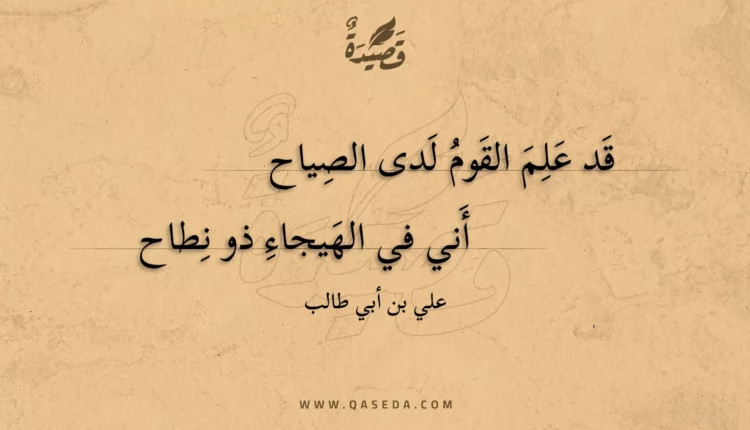 قَصِيْدَةٌ
قَد عَلِمَ القَومُ لَدى الصِياح
أَني في الهَيجاءِ ذو نِطاح
علي بن أبي طالب
WWW.QASEDA.COM